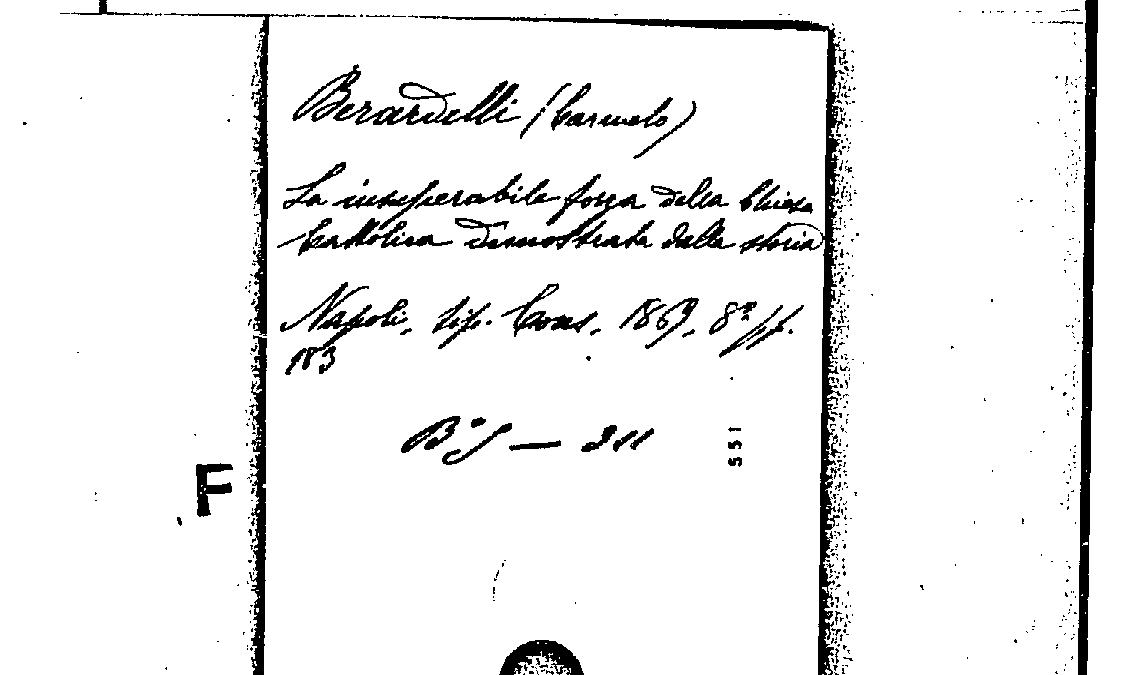 Berardelli (Carmelo)
La insuperabile forza della Chiesa
Cattolica dimostrata dalla storia
Napoli, tip. Cons., 1869, 8º pp.
183
B'S — 211
551
F